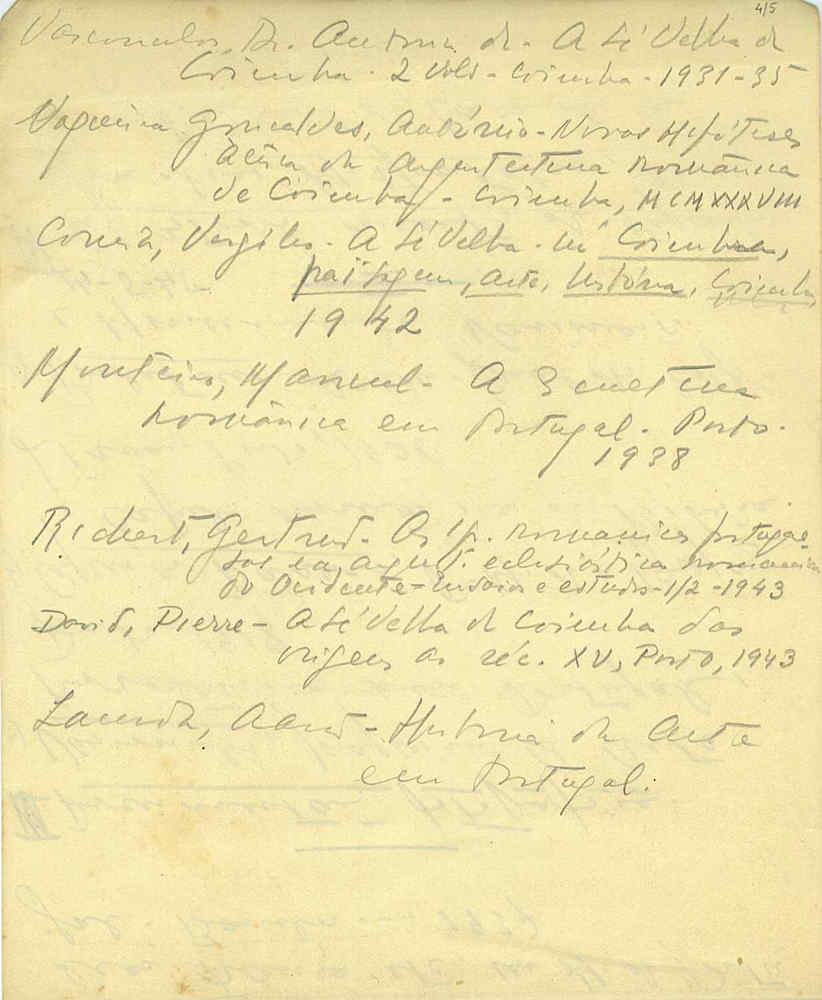 4/5
Vasconcelos, Dr. António de - A Sé Velha de
Coimbra - 2 vols - Coimbra - 1931-35
Nogueira Gonçalves, António - Novas Hipóteses
àcêrca da Arquitectura românica
de Coimbra - Coimbra, MCMXXXVIII
Correia, Vergílio - A Sé Velha - in Coimbra,
paisagem, arte, história, Coimbra
1942
Monteiro, Manuel - A Escultura
românica em Portugal - Porto -
1938
Richert, Gertrud - As ig. romanicas portugue-
sas e a arquit. eclesiástica romanica
do Ocidente - Ensaios e estudos - 1/2 - 1943
David, Pierre - A Sé Velha de Coimbra das
origens ao séc. XV, Porto, 1943
Lacerda, Aarão - História da Arte
em Portugal.